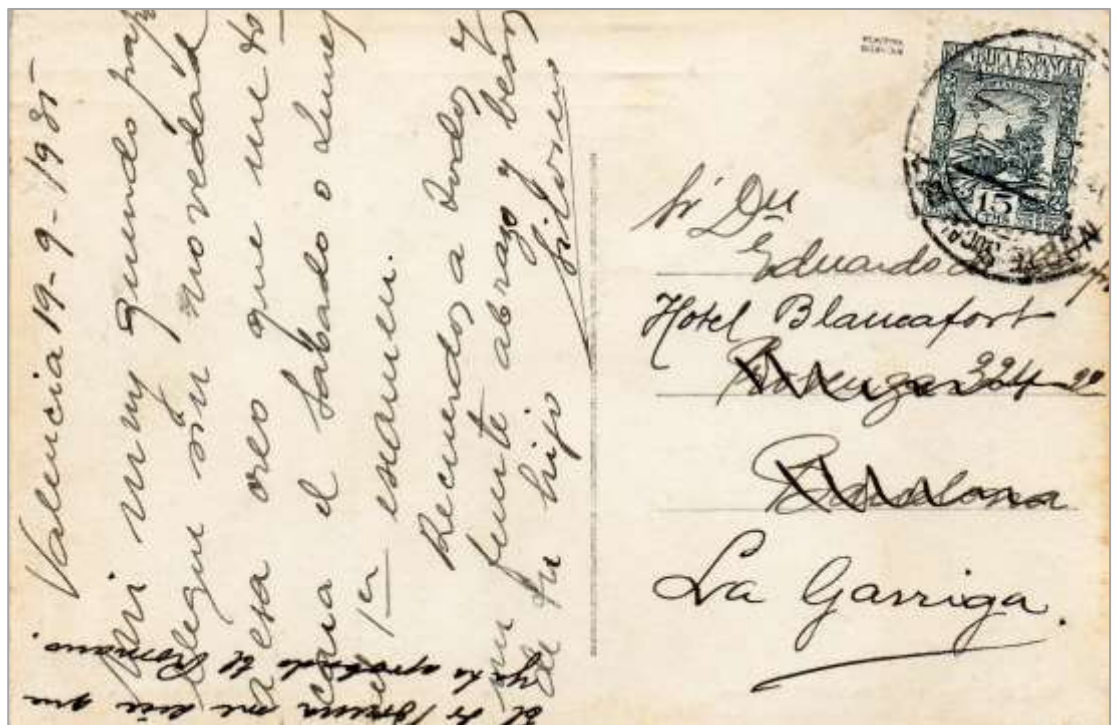 Valencia 19-9-1935
Mi muy querido papa
llegue sin novedad
a esa creo que me to
cara el Sabado o Lunes
el 1er esamen.
Recuerdos a todos y
un fuerte abrazo y besos
de tu hijo
El Sr me dice que
ya ha aprobado el Romano.
REPUBLICA ESPAÑOLA
15
CTMS
Sr Dn
Eduardo
Hotel Blancafort
324-2º
Barcelona
La Garriga.